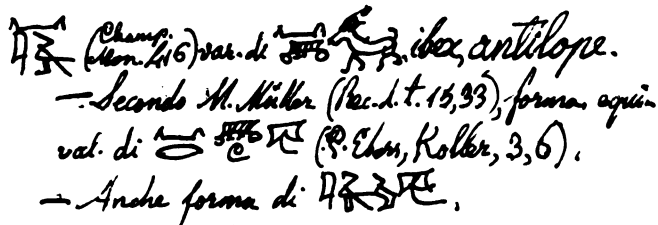 (Champ. Mon. 416) var. di ibex, antilope.
— Secondo M. Müller (Rec. d. t. 15,33), forma equi-
val. di (P. Ebers, Koller, 3,6).
— Anche forma di .